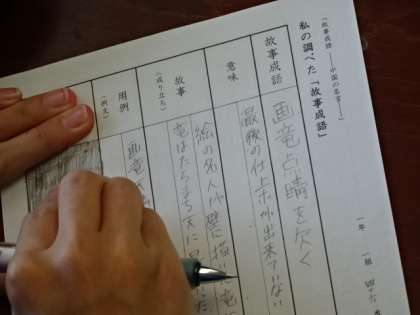 「故事成語 ――中国の名言――」
私の調べた「故事成語」
一年 一組 四十六
故事成語
画竜点睛を欠く
意味
最後の仕上げが出来ていない
故事
(成り立ち)
絵の名人が壁に描いた竜
竜はたちまち天に
用例
(例文)
画竜点